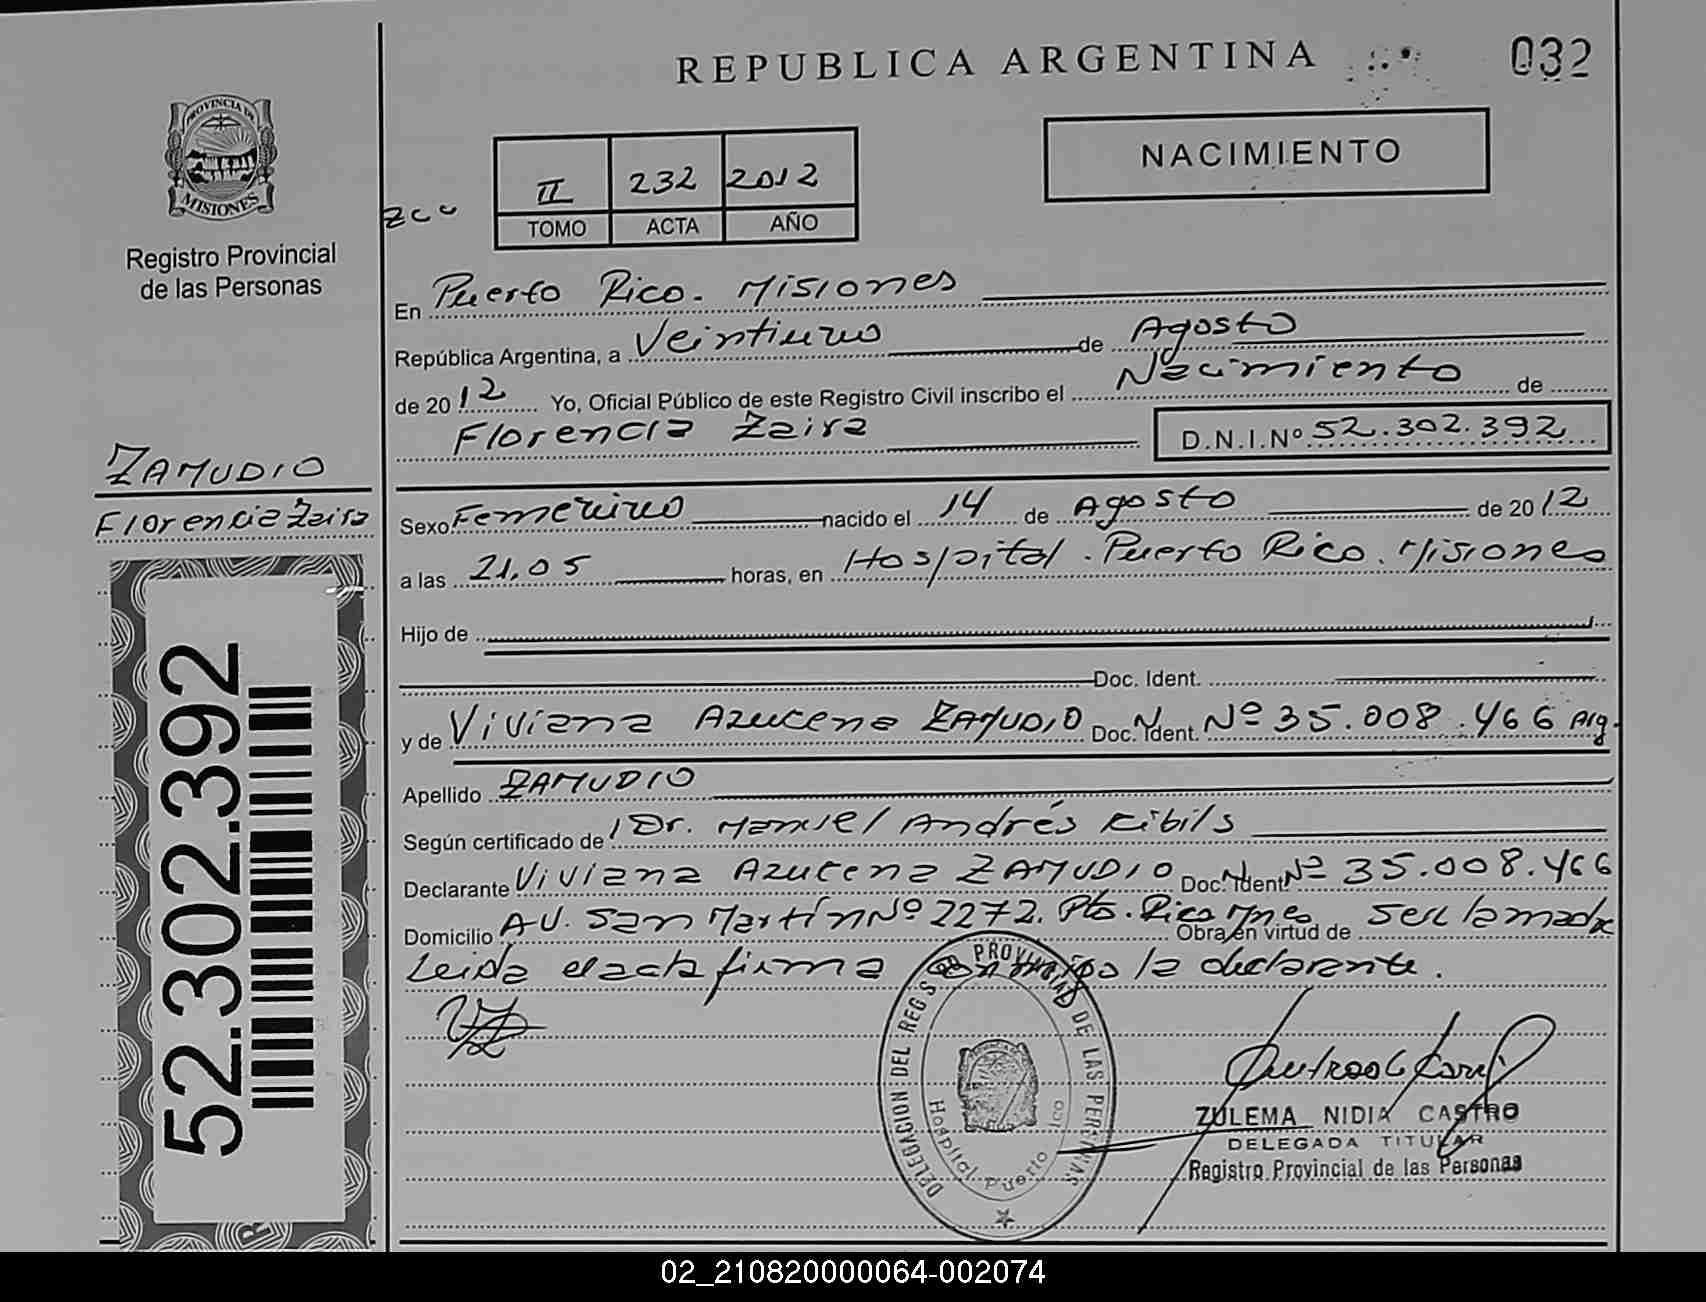 REPUBLICA ARGENTINA
032
PROVINCIA DE
MISIONES
Registro Provincial
de las Personas
NACIMIENTO
II 232 2012
TOMO ACTA AÑO
En Puerto Rico. Misiones
República Argentina, a Veintiuno de Agosto
de 2012 Yo, Oficial Público de este Registro Civil inscribo el Nacimiento de
Florencia Zaira D.N.I.Nº 52.302.392
ZAMUDIO
Florencia Zaira
Sexo Femenino nacido el 14 de Agosto de 2012
a las 21.05 horas, en Hospital. Puerto Rico. Misiones
Hijo de
Doc. Ident.
y de Viviana Azucena ZAMUDIO Doc. N. Ident. Nº 35.008.466 Arg.
Apellido ZAMUDIO
Según certificado de Dr. Manuel Andrés Kibils
Declarante Viviana Azucena ZAMUDIO Doc. N. Ident Nº 35.008.466
Domicilio AV. San Martín Nº 2272. Pto. Rico Mnes Obra en virtud de ser la madre
Leida el acta firma conmigo la declarante.
52.302.392
DELEGACION DEL REGISTRO PROVINCIAL DE LAS PERSONAS
Hospital Puerto Rico
ZULEMA NIDIA CASTRO
DELEGADA TITULAR
Registro Provincial de las Personas
02_210820000064-002074